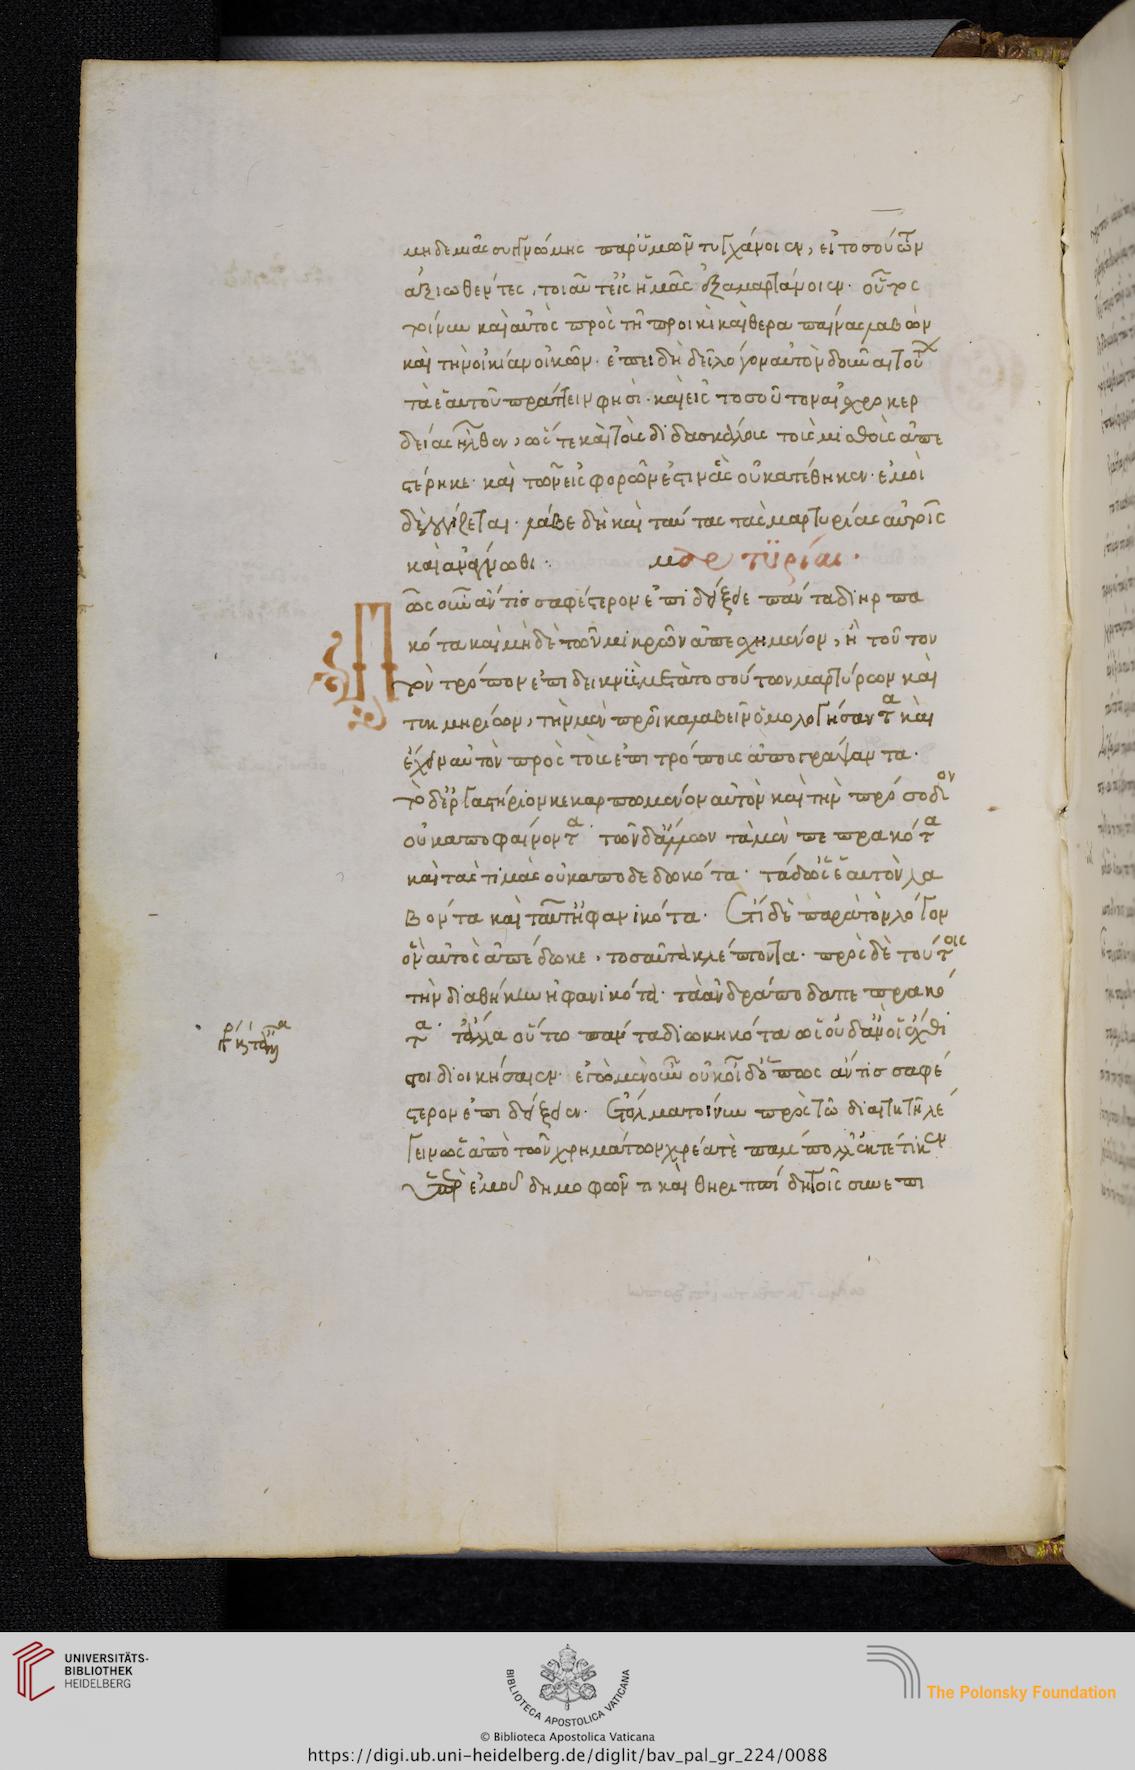 μηδεμιᾶς συγγνώμης παρ' ὑμῶν τυγχάνοιεν, εἰ τοσούτων
ἀξιωθέντες, τοιαῦτ' εἰς ἡμᾶς ἐξαμαρτάνοιεν. οὗτος
τοίνυν καὶ αὐτὸς πρὸς τῇ προικὶ καὶ θεραπαίνας λαβὼν
καὶ τὴν οἰκίαν οἰκῶν. ἐπειδὴ δεῖ λόγον αὐτὸν δοῦναι τούτων
τὰ ἑαυτοῦ πράττειν φησί. καὶ εἰς τοσοῦτον αἰσχροκερ
δείας ἦλθεν, ὥστε καὶ τοὺς διδασκάλους τοὺς μισθοὺς ἀπε
στέρηκε. καὶ τῶν εἰσφορῶν ἔστιν ἃς οὐ κατέθηκεν. ἐμοὶ
δὲ λογίζεται. λάβε δὴ καὶ ταύτας τὰς μαρτυρίας αὐτοῖς
καὶ ἀνάγνωθι. μαρτυρίαι.
Πῶς οὖν ἄν τις σαφέστερον ἐπιδείξειε πάντα διηρπα
κότα καὶ μηδὲ τῶν μικρῶν ἀπεσχημένον, ἢ τοῦτον
τὸν τρόπον ἐπιδεικνὺς μετὰ τοσούτων μαρτύρων καὶ
τεκμηρίων, τὴν μὲν προῖκα λαβεῖν ὁμολογήσαντα καὶ
ἔχειν αὐτὸν πρὸς τοὺς ἐπιτρόπους ἀπογράψαντα.
τὸ δ' ἐργαστήριον κεκαρπωμένον αὐτὸν καὶ τὴν πρόσοδον
οὐκ ἀποφαίνοντα. τῶν δ' ἄλλων τὰ μὲν πεπρακότα
καὶ τὰς τιμὰς οὐκ ἀποδεδωκότα. τὰ δ' ὡς ἑαυτὸν λα
βόντα καὶ ταῦτ' ἠφανικότα. ἔτι δὲ παρὰ τὸν λόγον
ὃν αὐτὸς ἀπέδωκε, τοσαῦτα κλέπτοντα. πρὸς δὲ τούτοις
τὴν διαθήκην ἠφανικότα. τὰ ἀνδράποδα πεπρακό
τα. τἄλλα οὕτω πάντα διῳκηκότα ὡς οὐδ' ἂν οἱ ἔχθι
στοι διοικήσαιεν. ἐγὼ μὲν οὖν οὐκ οἶδ' ὅπως ἄν τις σαφέ
στερον ἐπιδείξειεν. ἐτόλμα τοίνυν πρὸς τῷ διαιτητῇ λέ
γειν ὡς ἀπὸ τῶν χρημάτων χρέα τε πάμπολλ' ἐκτέτικεν
ὑπὲρ ἐμοῦ δημοφῶντι καὶ θηριππίδῃ τοῖς συνεπι
UNIVERSITÄTS-
BIBLIOTHEK
HEIDELBERG
BIBLIOTECA APOSTOLICA VATICANA
The Polonsky Foundation
© Biblioteca Apostolica Vaticana
https://digi.ub.uni-heidelberg.de/diglit/bav_pal_gr_224/0088